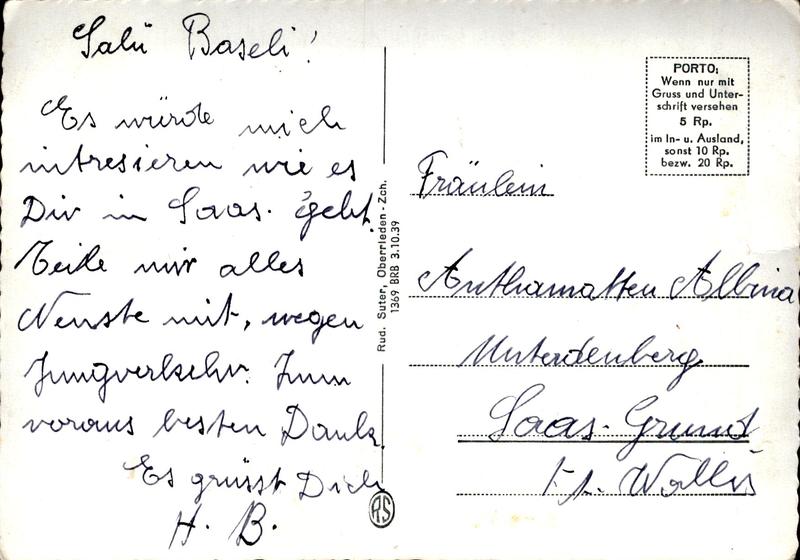 Salü Baseli!
Es würde mich
intresieren wie es
Dir in Saas. geht.
Teile mir alles
Neuste mit, wegen
Jungverkehr. Zum
voraus besten Dank.
Es grüsst Dich
H. B.
Rud. Suter, Oberrieden-Zch.
1369 BRB 3.10.39
RS
PORTO:
Wenn nur mit
Gruss und Unter-
schrift versehen
5 Rp.
im In- u. Ausland,
sonst 10 Rp.
bezw. 20 Rp.
Fräulein
Anthamatten Albina
Unterdenberg
Saas-Grund
Kt. Wallis